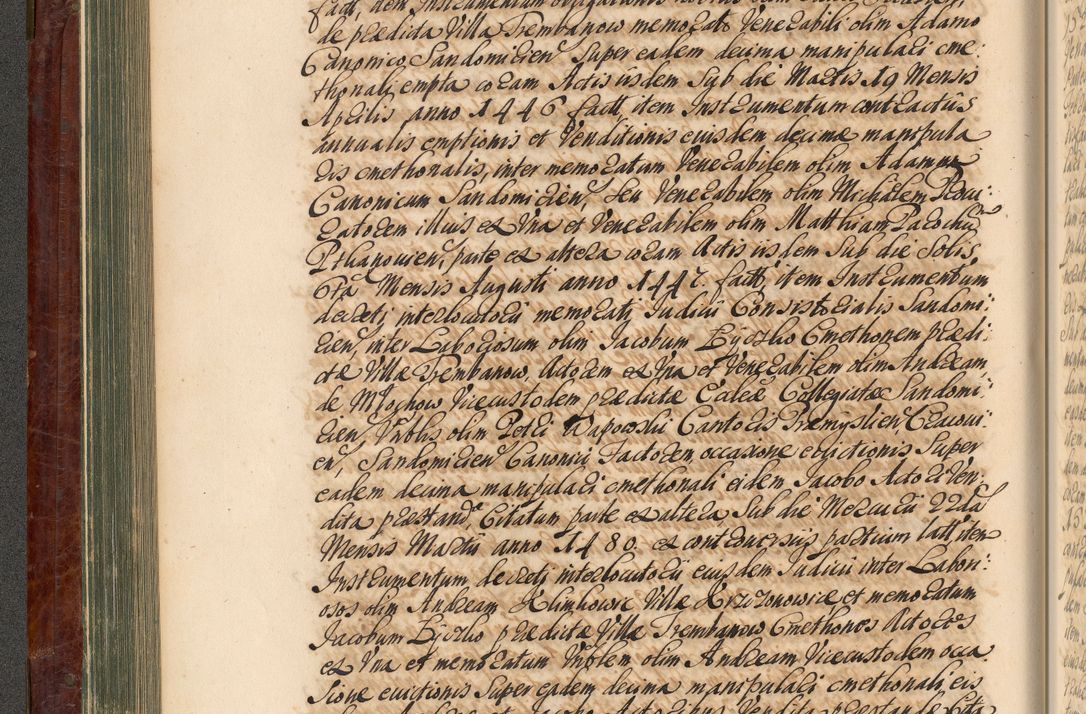 de prædicta Villa Trembanow memorato Venerabili olim Adamo
Canonico Sandomirien, Super eadem decima manipulari cme:
thonali, empta coram Actis iisdem Sub die Martis 19 Mensis
Aprilis anno 1446 fact, item Instrumentum contractus
annualis emptionis et Venditionis eiusdem decimæ manipula
ris cmethonalis, inter memoratum Venerabilem olim Adamum
Canonicum Sandomirien, seu Venerabilem olim Michælem Procu:
ratorem illius ex Una et Venerabilem olim Matthiam Parochum
Pthanovien, parte ex altera coram Actis iisdem Sub die Solis
6ta Mensis Augusti anno 1447. fact, item Instrumentum
decreti interlocutorii memorati Judicii Consistorialis Sandomi:
rien, inter Laboriosum olim Jacobum Byczko Cmethonem prædi:
ctæ Villæ Trembanow, Actorem ex Una et Venerabilem olim Andream
de Mjochow Vicecustodem prædictæ Ecclæ Collegiatæ Sandomi:
rien, Nobilis olim Petri Wapowski Cantoris Præmyslien Cracovi:
en, Sandomirien Canonici Factorem occasione evictionis Super
eadem decima manipulari cmethonali eidem Jacobo Actori Ven
dita præstand, Citatum parte ex altera, Sub die Mercurii 22da
Mensis Martii anno 1480. ex controversiis partium latt, item
Instrumentum decreti interlocutorii eiusdem Judicii inter Labori:
osos olim Andream Klimkowic Villæ Krzczonowice et memoratum
Jacobum Byczko, prædictæ Villæ Trembanow Cmethones Actores
ex Una et memoratum Noblem olim Andream Vicecustodem occa
sione evictionis Super eadem decima manipulari cmethonali eis